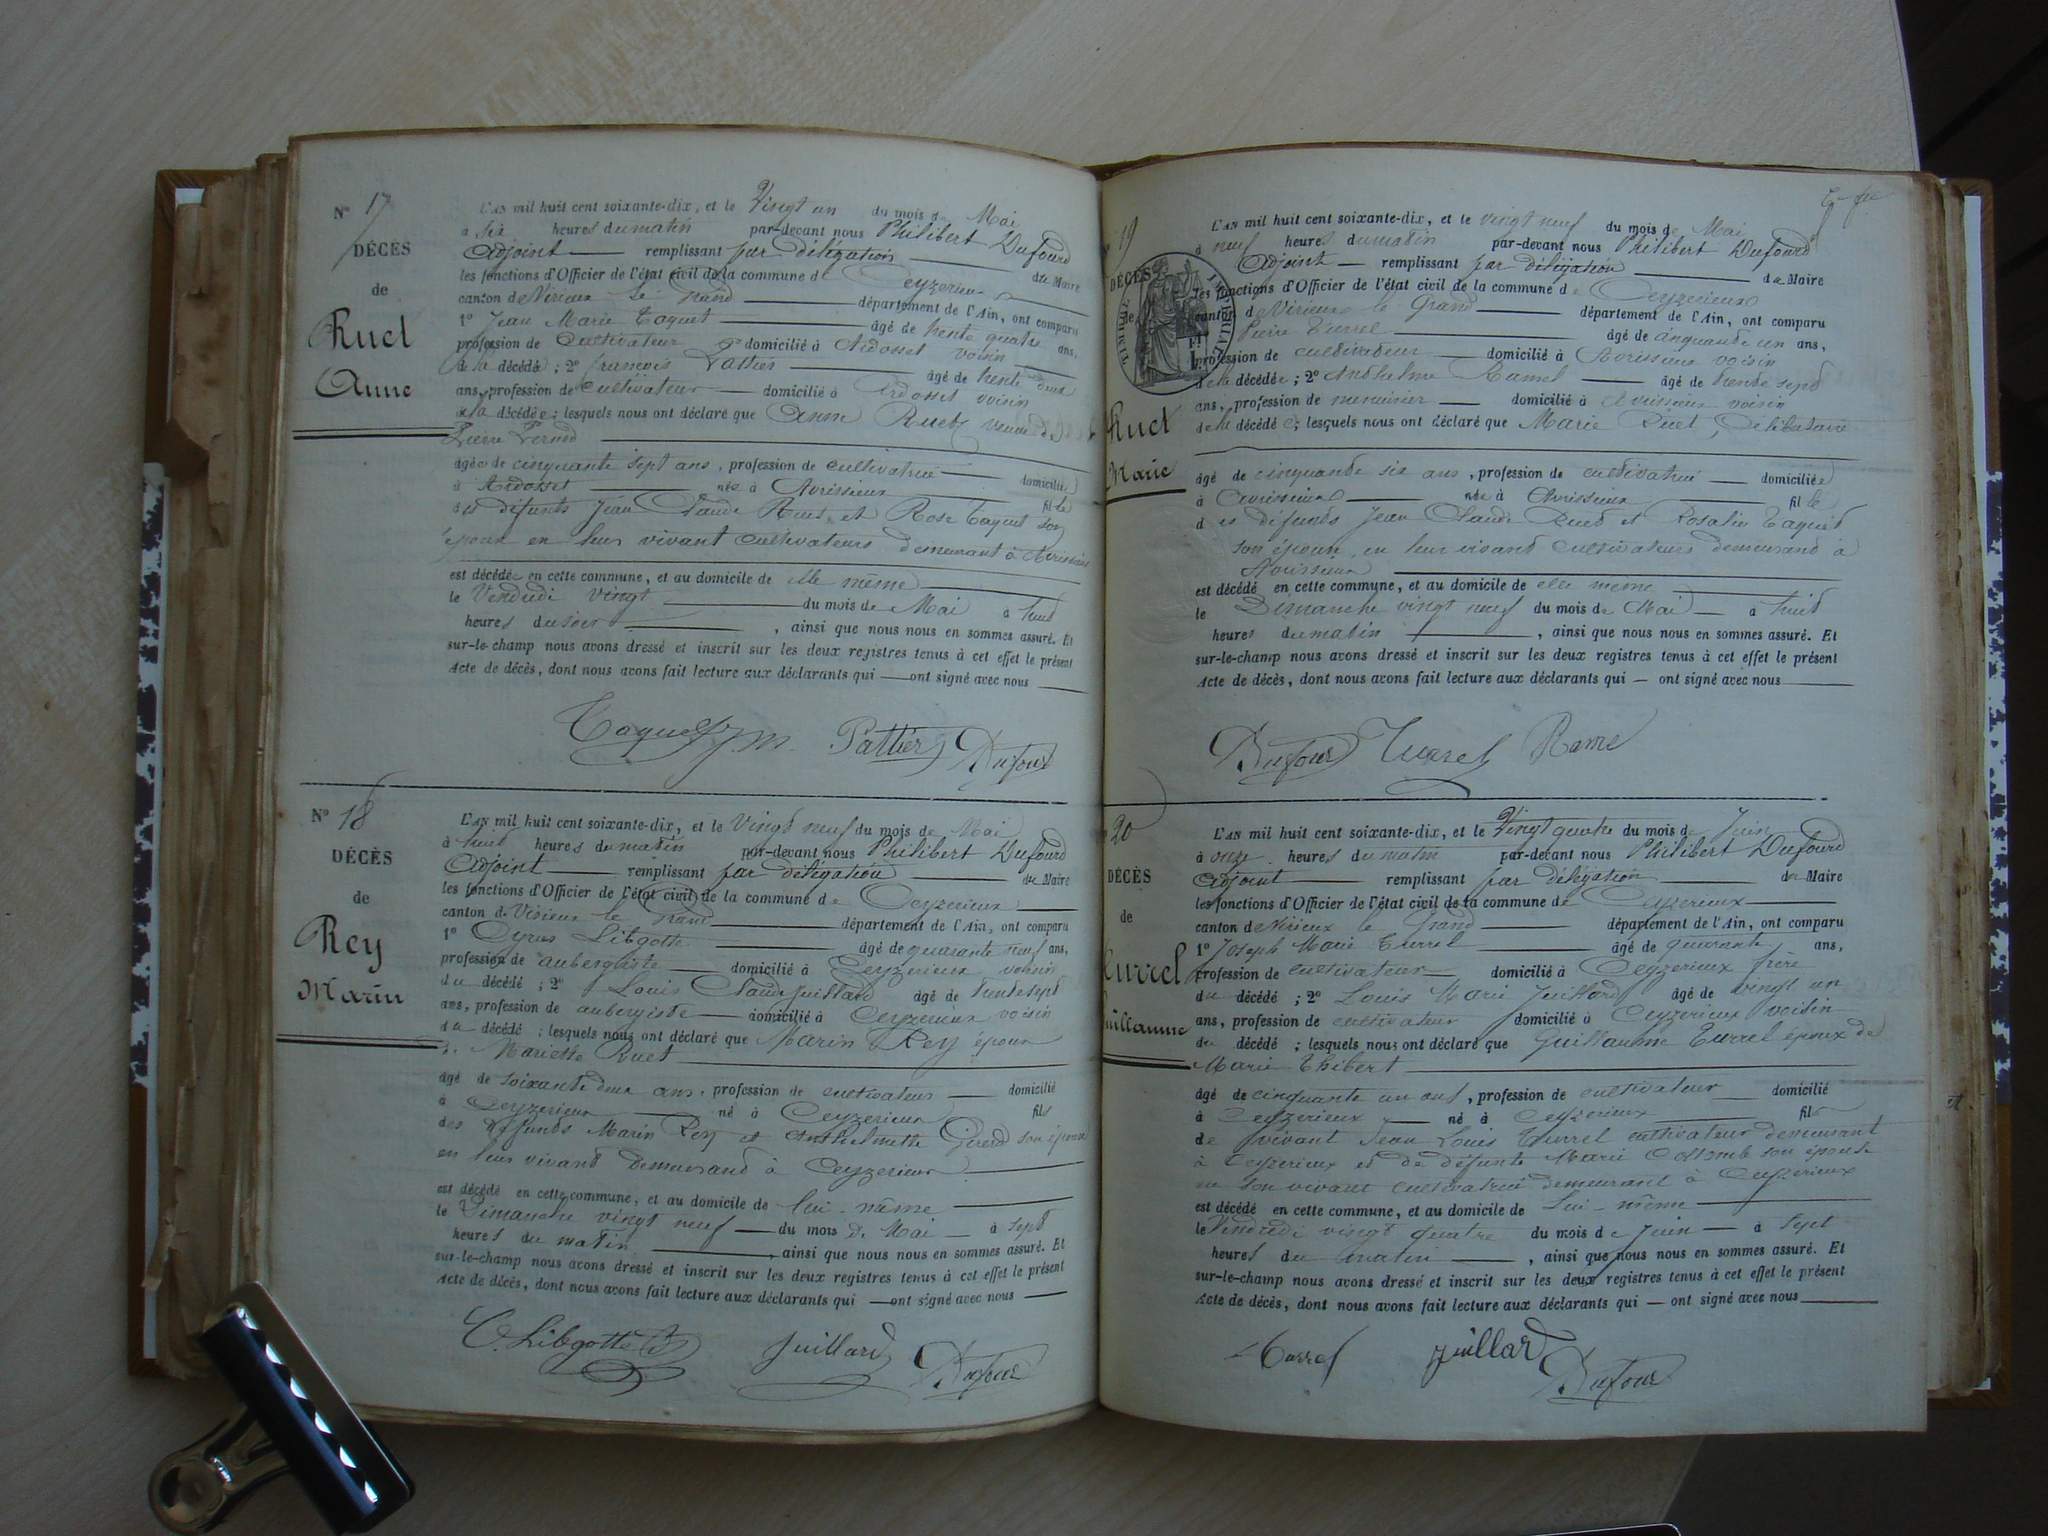 N° 17
DÉCÈS
de
Ruet
Anne
L'AN mil huit cent soixante-dix, et le Vingt un du mois de Mai
à six heures du matin par-devant nous Philibert Dufourd
Adjoint remplissant par délégation du Maire
les fonctions d'Officier de l'état civil de la commune de Ceyzerieux
canton de Virieux le Grand département de l'Ain, ont comparu
1° Jean Marie Taquet âgé de trente quatre ans,
profession de Cultivateur domicilié à Ardosset voisin
de la décédée ; 2° françois Pattier âgé de trente deux
ans, profession de Cultivateur domicilié à Ardosset voisin
de la décédée ; lesquels nous ont déclaré que Anne Ruet, veuve de
Pierre
âgée de cinquante sept ans, profession de cultivatrice domiciliée
à Ardosset née à Avrissieux fille
des défunts Jean Claude Ruet et Rose Taquet son
épouse en leur vivant cultivateurs demeurant à Avrissieux
est décédée en cette commune, et au domicile de elle même
le Vendredi vingt du mois de Mai à huit
heures du soir , ainsi que nous nous en sommes assuré. Et
sur-le-champ nous avons dressé et inscrit sur les deux registres tenus à cet effet le présent
Acte de décès, dont nous avons fait lecture aux déclarants qui ont signé avec nous
Taquet J M. Pattier Dufour
N° 18
DÉCÈS
de
Rey
Marin
L'AN mil huit cent soixante-dix, et le Vingt neuf du mois de Mai
à huit heures du matin par-devant nous Philibert Dufourd
Adjoint remplissant par délégation du Maire
les fonctions d'Officier de l'état civil de la commune de Ceyzerieux
canton de Virieux le Grand département de l'Ain, ont comparu
1° Cyrus Libgotte âgé de quarante neuf ans,
profession de aubergiste domicilié à Ceyzerieux voisin
du décédé ; 2° Louis Claude Juillard âgé de trente sept
ans, profession de aubergiste domicilié à Ceyzerieux voisin
du décédé ; lesquels nous ont déclaré que Marin Rey époux
de Mariette Ruet
âgé de soixante deux ans, profession de cultivateur domicilié
à Ceyzerieux né à Ceyzerieux fils
des défunts Marin Rey et Anthelmette son épouse
en leur vivant demeurant à Ceyzerieux
est décédé en cette commune, et au domicile de lui-même
le Dimanche vingt neuf du mois de Mai à sept
heures du matin , ainsi que nous nous en sommes assuré. Et
sur-le-champ nous avons dressé et inscrit sur les deux registres tenus à cet effet le présent
Acte de décès, dont nous avons fait lecture aux déclarants qui ont signé avec nous
C. Libgotte Juillard Dufour
19
DÉCÈS
de
TIMBRE IMPÉRIAL
Ruet
Marie
L'AN mil huit cent soixante-dix, et le vingt neuf du mois de Mai
à neuf heures du matin par-devant nous Philibert Dufourd
Adjoint remplissant par délégation du Maire
les fonctions d'Officier de l'état civil de la commune de Ceyzerieux
canton de Virieux le Grand département de l'Ain, ont comparu
Pierre Turrel âgé de cinquante un ans,
profession de cultivateur domicilié à Avrissieux voisin
de la décédée ; 2° Anthelme Ramel âgé de trente sept
ans, profession de menuisier domicilié à Avrissieux voisin
de la décédée ; lesquels nous ont déclaré que Marie Ruet, Célibataire
âgé de cinquante six ans, profession de cultivatrice domiciliée
à Avrissieux née à Avrissieux fille
des défunts Jean Claude Ruet et Rosalie Taquet
son épouse en leur vivant cultivateurs demeurant à
Avrissieux
est décédé en cette commune, et au domicile de elle même
le Dimanche vingt neuf du mois de Mai à huit
heures du matin , ainsi que nous nous en sommes assuré. Et
sur-le-champ nous avons dressé et inscrit sur les deux registres tenus à cet effet le présent
Acte de décès, dont nous avons fait lecture aux déclarants qui ont signé avec nous
Dufour Turrel Rame
20
DÉCÈS
de
Turrel
Guillaume
L'AN mil huit cent soixante-dix, et le Vingt quatre du mois de Juin
à onze heures du matin par-devant nous Philibert Dufourd
Adjoint remplissant par délégation du Maire
les fonctions d'Officier de l'état civil de la commune de Ceyzerieux
canton de Virieux le Grand département de l'Ain, ont comparu
1° Joseph Marie Turrel âgé de quarante ans,
profession de cultivateur domicilié à Ceyzerieux frère
du décédé ; 2° Louis Marie Juillard âgé de vingt un
ans, profession de cultivateur domicilié à Ceyzerieux voisin
du décédé ; lesquels nous ont déclaré que Guillaume Turrel époux de
Marie Thibert
âgé de cinquante un ans, profession de cultivateur domicilié
à Ceyzerieux né à Ceyzerieux fils
de vivant Jean Louis Turrel cultivateur demeurant
à Ceyzerieux et de défunte Marie Collomb son épouse
en son vivant cultivatrice demeurant à Ceyzerieux
est décédé en cette commune, et au domicile de Lui-même
le Vendredi vingt quatre du mois de Juin à sept
heures du matin , ainsi que nous nous en sommes assuré. Et
sur-le-champ nous avons dressé et inscrit sur les deux registres tenus à cet effet le présent
Acte de décès, dont nous avons fait lecture aux déclarants qui ont signé avec nous
Turrel Juillard
Dufour